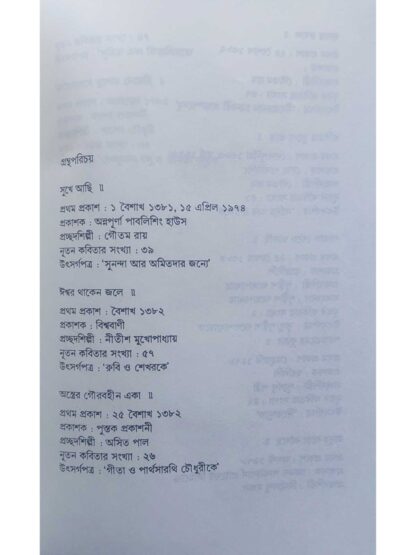 গ্রন্থপরিচয়
সুখে আছি ॥
প্রথম প্রকাশ : ১ বৈশাখ ১৩৮১, ১৫ এপ্রিল ১৯৭৪
প্রকাশক : অন্নপূর্ণা পাবলিশিং হাউস
প্রচ্ছদশিল্পী : গৌতম রায়
নূতন কবিতার সংখ্যা : ৩৯
উৎসর্গপত্র : ‘সুনন্দা আর অমিতদার জন্যে’
ঈশ্বর থাকেন জলে ॥
প্রথম প্রকাশ : বৈশাখ ১৩৮২
প্রকাশক : বিশ্ববাণী
প্রচ্ছদশিল্পী : নীতীশ মুখোপাধ্যায়
নূতন কবিতার সংখ্যা : ৫৭
উৎসর্গপত্র : ‘রুবি ও শেখরকে’
অস্ত্রের গৌরবহীন একা ॥
প্রথম প্রকাশ : ২৫ বৈশাখ ১৩৮২
প্রকাশক : পুস্তক প্রকাশনী
প্রচ্ছদশিল্পী : অসিত পাল
নূতন কবিতার সংখ্যা : ২৬
উৎসর্গপত্র : ‘গীতা ও পার্থসারথি চৌধুরীকে’